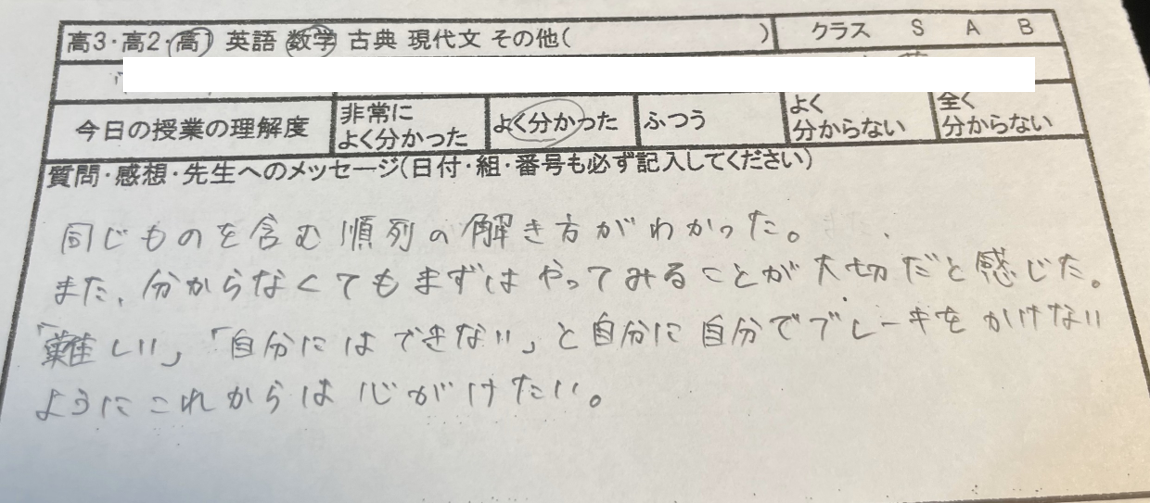 高3・高2・高1 英語 数学 古典 現代文 その他( ) クラス S A B
今日の授業の理解度 非常によく分かった よく分かった ふつう よく分からない 全く分からない
質問・感想・先生へのメッセージ(日付・組・番号も必ず記入してください)
同じものを含む順列の解き方がわかった。
また、分からなくてもまずはやってみることが大切だと感じた。
「難しい」「自分にはできない」と自分に自分でブレーキをかけない
ようにこれからは心がけたい。